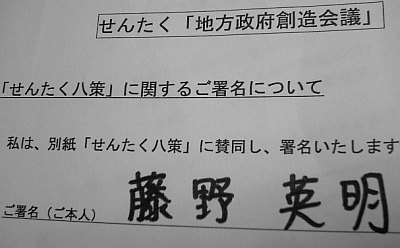 せんたく「地方政府創造会議」
「せんたく八策」に関するご署名について
私は、別紙「せんたく八策」に賛同し、署名いたします
ご署名（ご本人） 藤野 英明